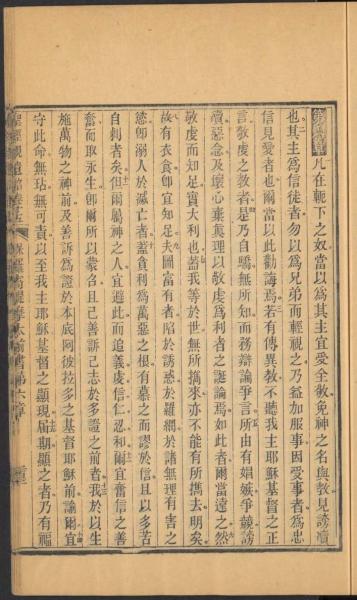 第六章凡在軛下之奴當以爲其主宜愛全敬免神之名與教見謗讟
也其主爲信徒者勿以爲兄弟而輕視之乃益加服事因愛事者爲忠
信見愛者也爾當以此勸誨焉若有傳異教不聽我主耶穌基督之正
言教虔之教者是乃自驕無所知而務辯論爭言所由有娼嫉爭競謗
讟惡念及壞心棄眞理以敬虔爲利者之誕論焉如此者爾當遠之然
敬虔而知足實大利也蓋我等於世無所攜來亦不能有所攜去明矣
故有衣食卽宜知足夫圖富有者陷於誘惑於羅網於諸無理有害之
慾卽溺人於滅亡者蓋貪利爲萬惡之根有慕之而謬於信且以多苦
自刺者矣但爾屬神之人宜避此而追義虔信仁忍和爾宜奮信之善
奮而取永生卽爾所以蒙召且已善訴己志於多證之前者我於以生
施萬物之神前及善訴爲證於本底阿彼拉多之基督耶穌前諭爾宜
守此命無玷無可責以至我主耶穌基督之顯現屆期顯之者乃有福